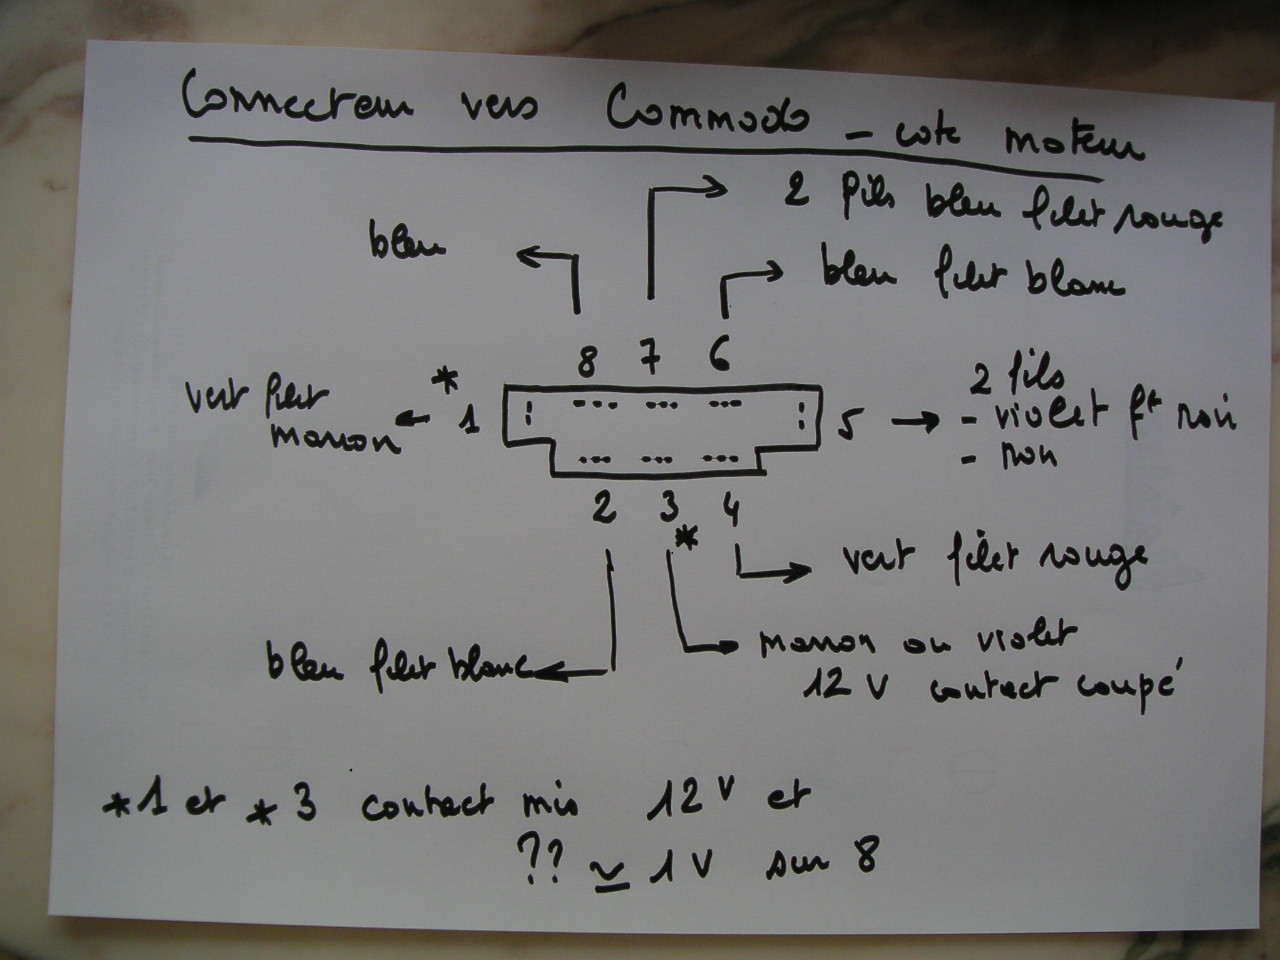 Connecteur vers Commodo - coté moteur
2 fils bleu filet rouge
bleu
bleu filet blanc
8 7 6
vert filet
marron
* 1
5
2 fils
- violet ft noir
- noir
2 3 4
*
vert filet rouge
bleu filet blanc
marron ou violet
12 V contact coupé
*1 et *3 contact mis 12 V et
?? ≃ 1 V sur 8